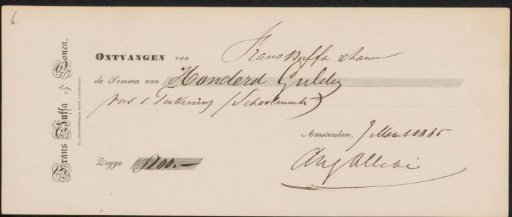 6.
Frans Buffa & Zonen.
ONTVANGEN van Frans Buffa & Zonen
de Somma van Honderd Gulden
voor 1 Teekening (Schoolmeester)
Amsterdam, 9 Maart 1885
Zegge f100.—
Aug Allebé